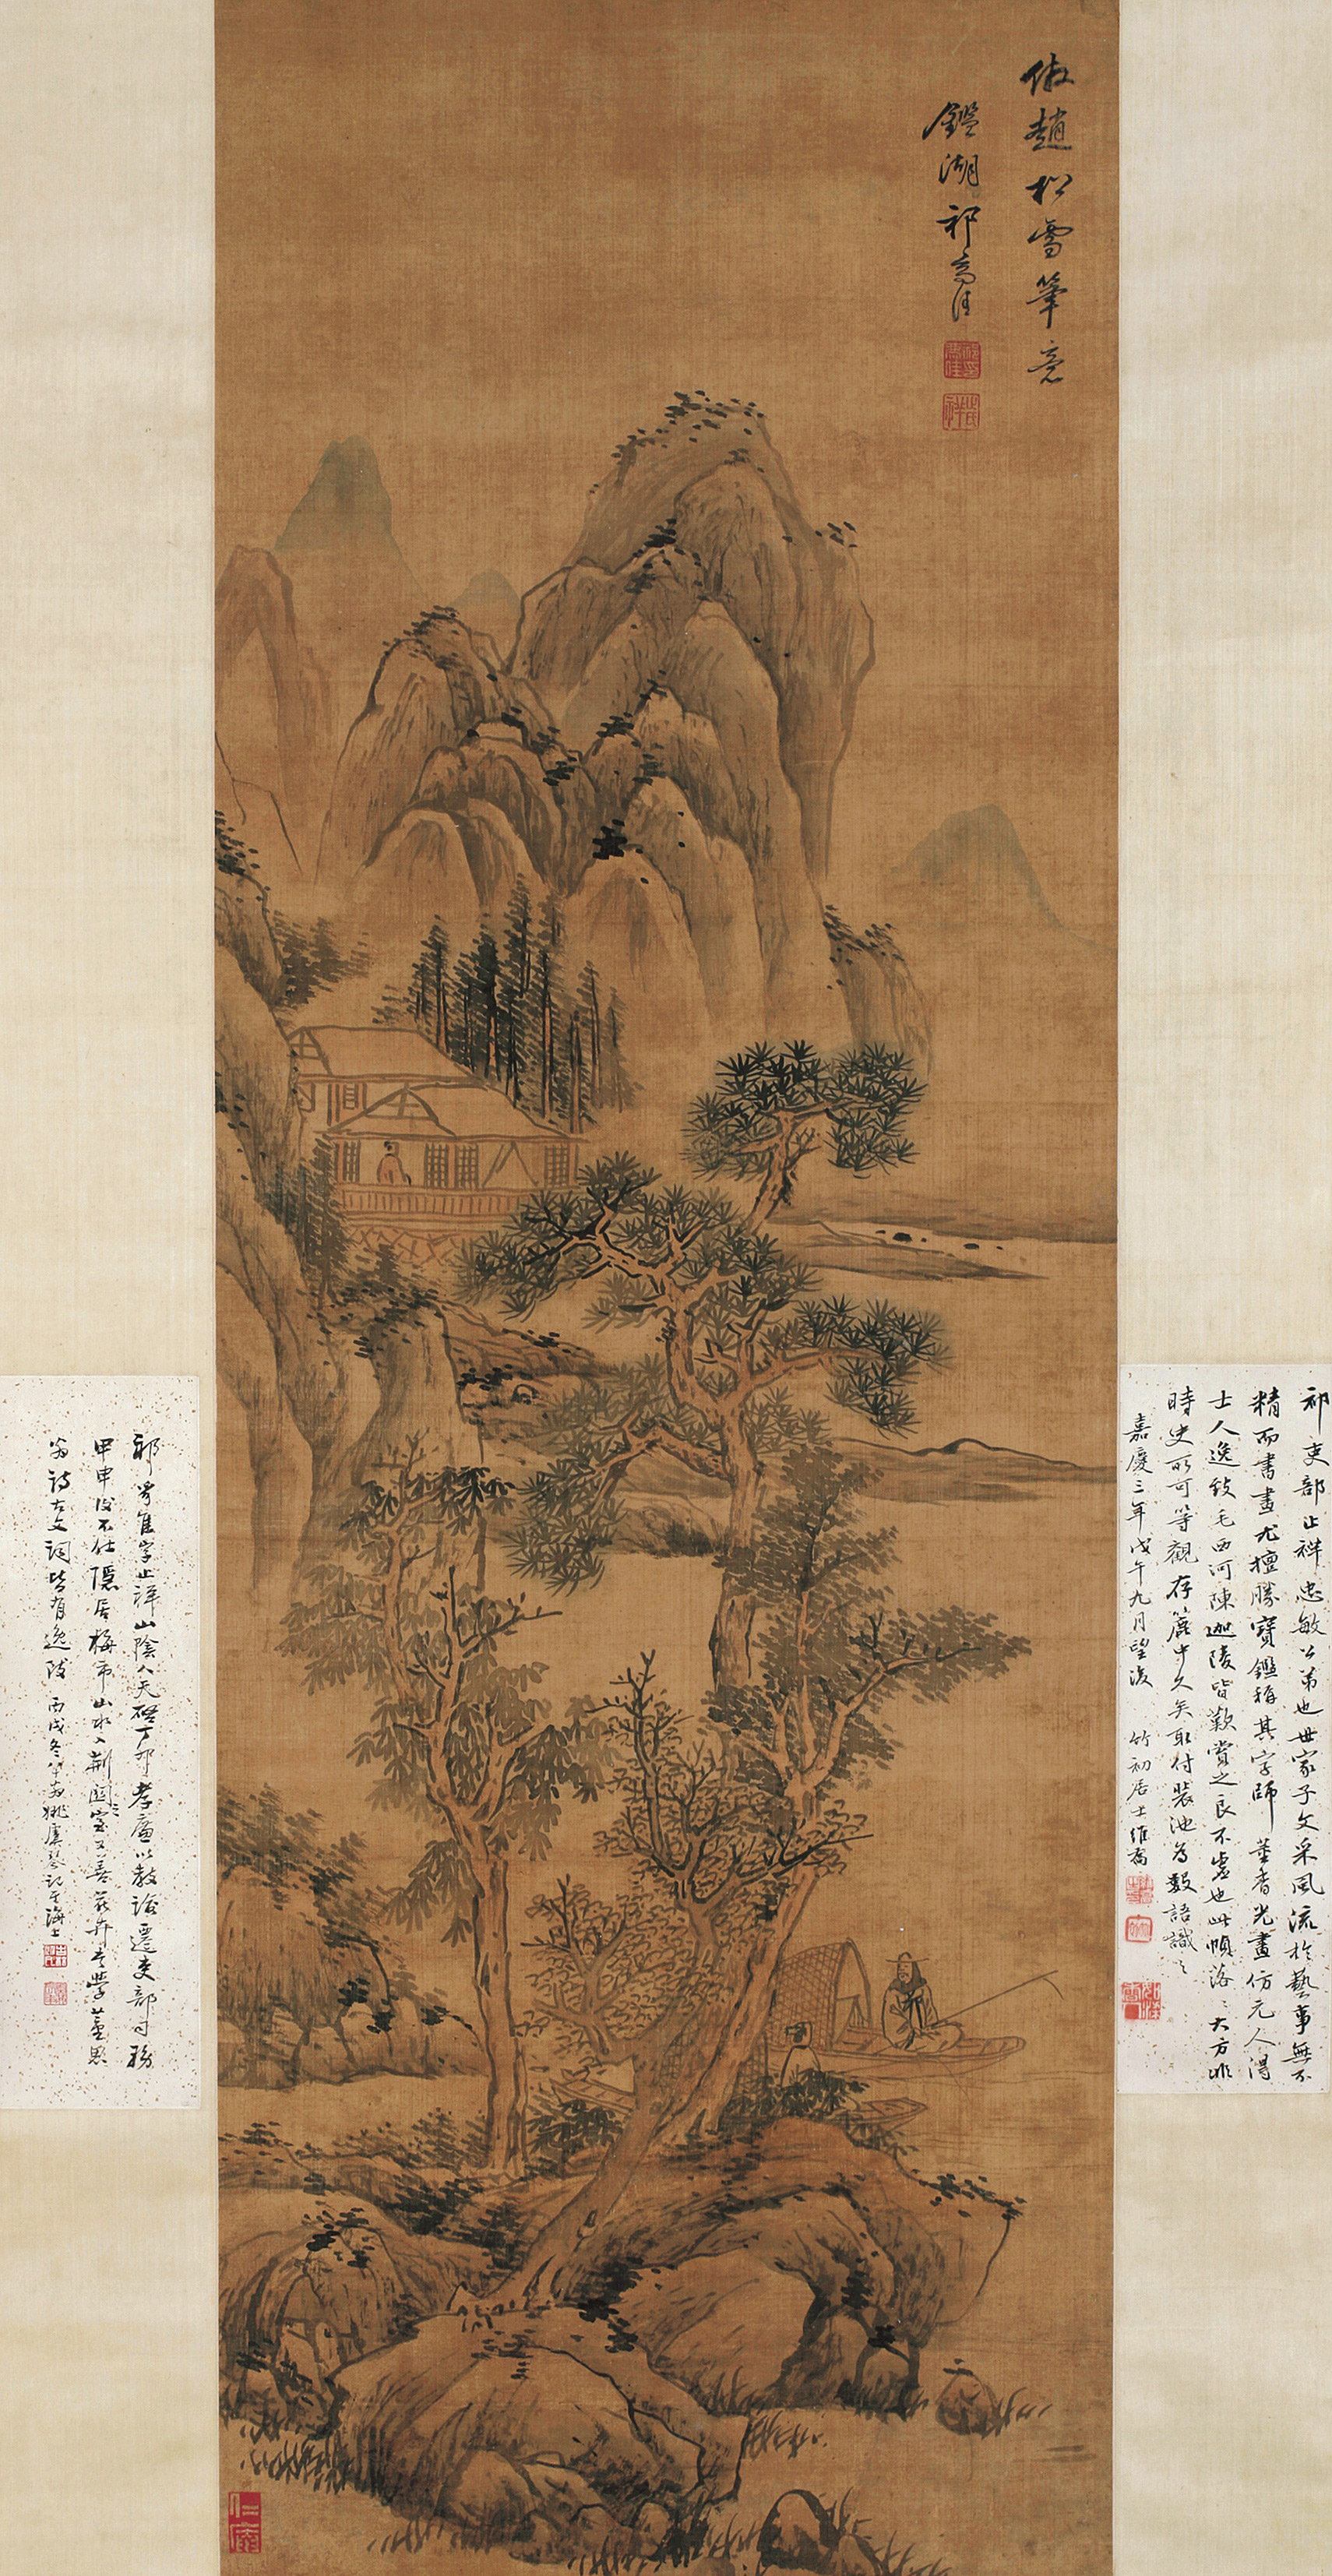 倣趙松雪筆意
鑑湖祁豸佳
祁吏部止祥忠敏公弟也世家子文采風流於藝事無不
精而書畫尤擅勝寶鑑稱其字師董香光畫仿元人得
士人逸致毛西河陳迦陵皆歎賞之良不虛也此幀落落大方非
時史所可等觀存簏中久矣取付裝池為數語識之
嘉慶三年戊午九月望後 竹初居士維喬
祁豸佳字止祥山陰人天啓丁卯孝廉以教諭遷吏部司務
甲申後不仕隱居梅市山水入荆關之室又善花卉書學董思
翁詩古文詞皆有逸致 丙戌冬 姚虞琴記於海上